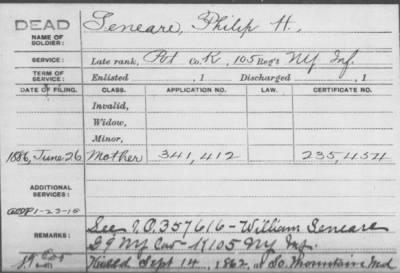 DEAD
NAME OF SOLDIER:
Seneare, Philip H.
SERVICE:
Late rank, Pvt Co. K, 105 Reg't NY Inf.
TERM OF SERVICE:
Enlisted , 1 Discharged , 1
DATE OF FILING. CLASS. APPLICATION NO. LAW. CERTIFICATE NO.
Invalid,
Widow,
Minor,
1886, June 26 Mother 341,412 235,454
ADDITIONAL SERVICES:
1-23-15
REMARKS:
See I.O. 357616 - William Seneare
D 9 NY Cav - K 105 NY Inf.
Killed Sept 14, 1862, So. Mountain Md